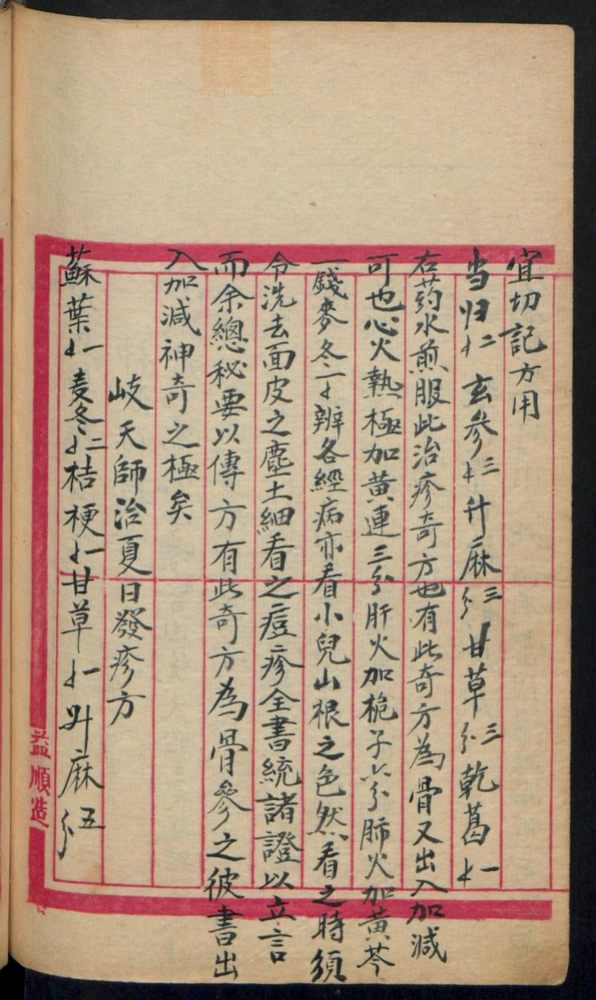 宜切記方用
当归二才 玄參三才 升麻三分 甘草三分 乾葛一才
右药水煎服此治疹奇方也有此奇方為骨又出入加減
可也心火熱極加黄連三分肝火加梔子六分肺火加黄芩
一錢麥冬一才辨各經病亦看小兒山根之色然看之時須
令洗去面皮之塵土細看之痘疹全書統諸證以立言
而余總秘要以傳方有此奇方為骨參之彼書出
入加減神奇之極矣
岐天師治夏日發疹方
蘇葉一才麦冬二才桔梗一才甘草一才升麻五分
益順造